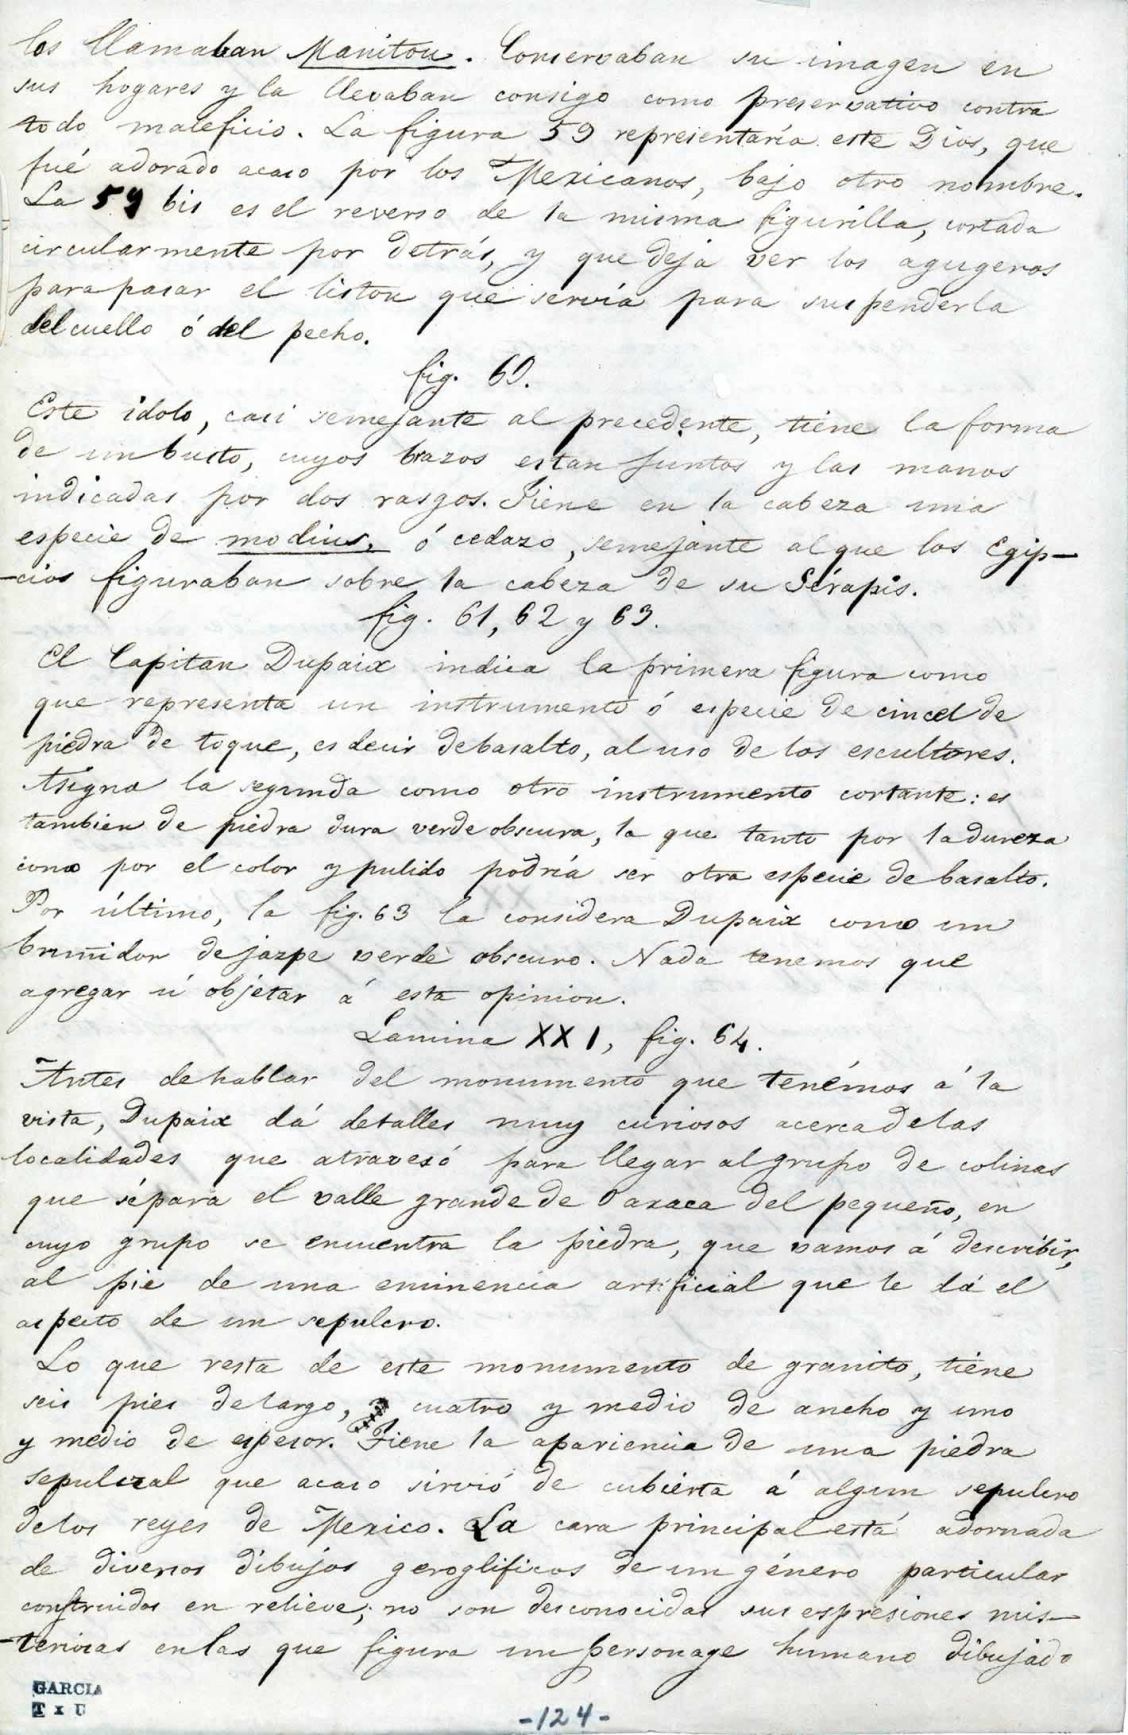 los llamaban Manitou. Conservaban su imagen en
sus hogares y la llevaban consigo como preservativo contra
todo maleficio. La figura 59 representaría este Dios, que
fué adorado acaso por los Mexicanos, bajo otro nombre.
La 59 bis es el reverso de la misma figurilla, cortada
circularmente por detrás, y que deja ver los agugeros
para pasar el liston que servía para suspenderla
del cuello ó del pecho.
fig. 60.
Este idolo, casi semejante al precedente, tiene la forma
de un busto, cuyos brazos estan juntos y las manos
indicadas por dos rasgos. Tiene en la cabeza una
especie de modius, ó cedazo, semejante al que los Egip-
-cios figuraban sobre la cabeza de su Sérapis.
fig. 61, 62 y 63.
El Capitan Dupaix indica la primera figura como
que representa un instrumento ó especie de cincel de
piedra de toque, es decir de basalto, al uso de los escultores.
Asigna la segunda como otro instrumento cortante: es
tambien de piedra dura verde obscura, la que tanto por la dureza
como por el color y pulido podría ser otra especie de basalto.
Por último, la fig. 63 la considera Dupaix como un
bruñidor de jazpe verde obscuro. Nada tenemos que
agregar ú objetar á esta opinion.
Lamina XXI, fig. 64.
Antes de hablar del monumento que tenémos á la
vista, Dupaix dá detalles muy curiosos acerca de las
localidades que atravesó para llegar al grupo de colinas
que sépara el valle grande de Oaxaca del pequeño, en
cuyo grupo se encuentra la piedra, que vamos á describir,
al pie de una eminencia artificial que le dá el
aspecto de un sepulcro.
Lo que resta de este monumento de granito, tiene
seis pies de largo, cuatro y medio de ancho y uno
y medio de espesor. Tiene la apariencia de una piedra
sepulcral que acaso sirvió de cubierta á algun sepulcro
de los reyes de Mexico. La cara principal está adornada
de diversos dibujos geroglificos de un género particular
construidos en relieve; no son desconocidas sus espresiones mis-
-teriosas en las que figura un personage humano dibujado
GARCIA
T x U
-124-